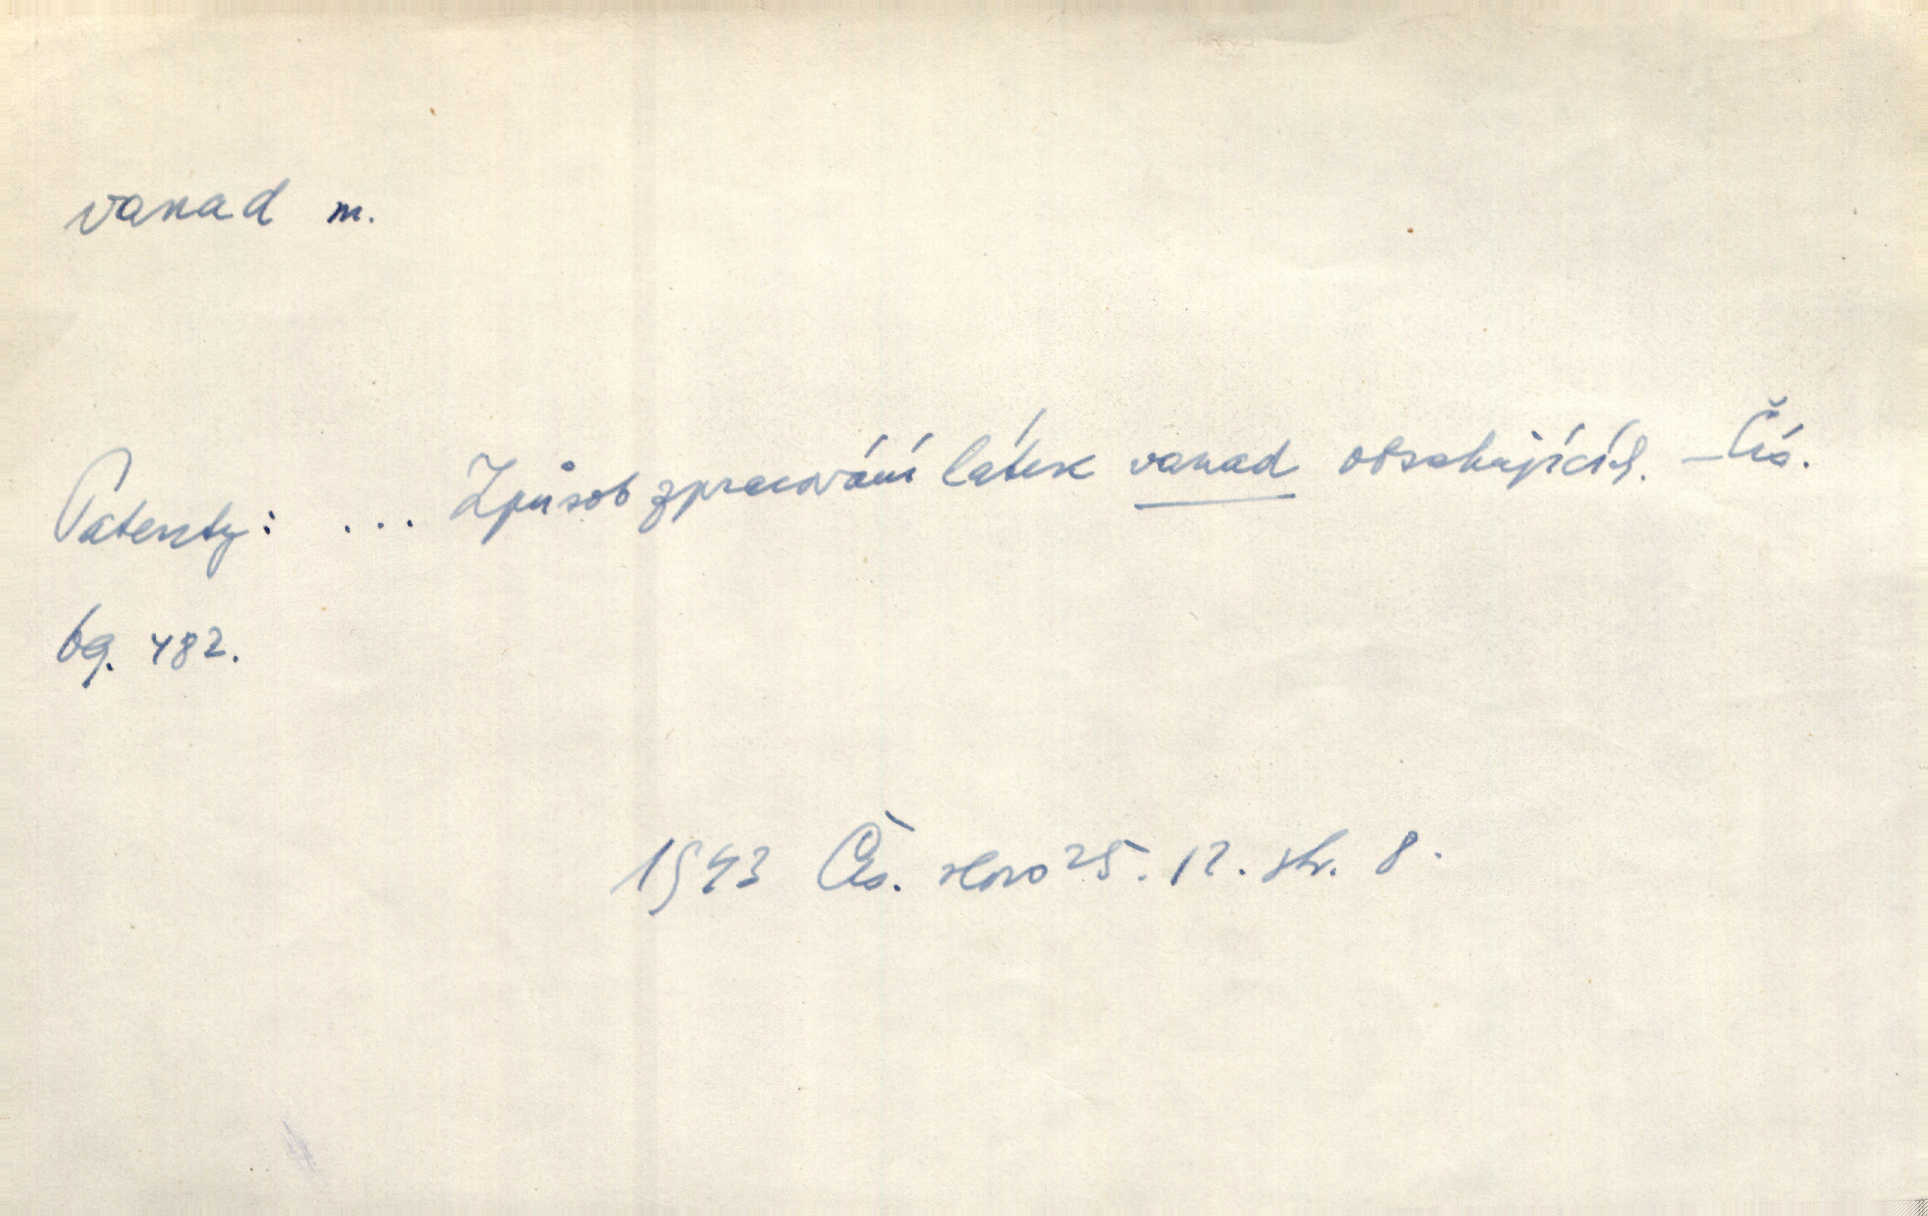 vanad m.
Patenty: ... Způsob zpracování látek vanad obsahujících. - Čís.
69. 482.
1943 Čes. slovo 25. 12. str. 8.